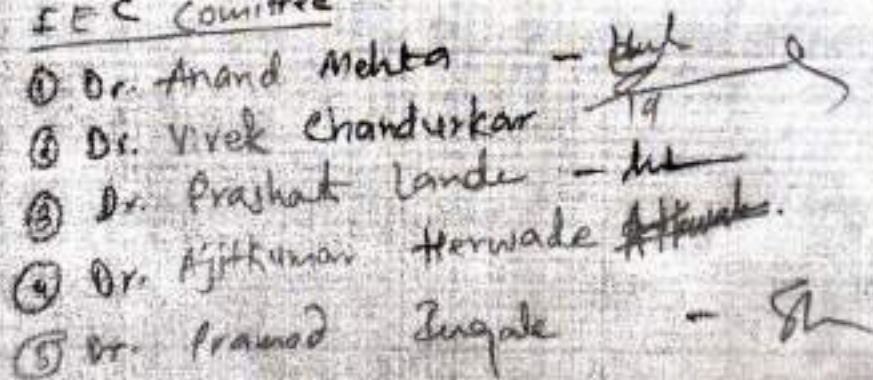 IEC Comittee
① Dr. Anand Mehta -
② Dr. Vivek Chandurkar
③ Dr. Prashant Lande -
④ Dr. Ajitkumar Herwade
⑤ Dr. Pramod Ingale -